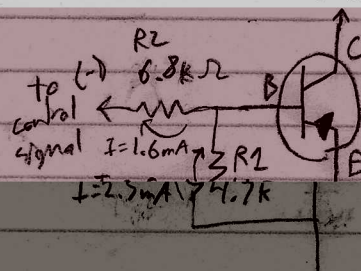 R2
6.8kΩ
to (-)
control
signal
B
C
E
I=1.6mA
R1
I=2.3mA
4.7k